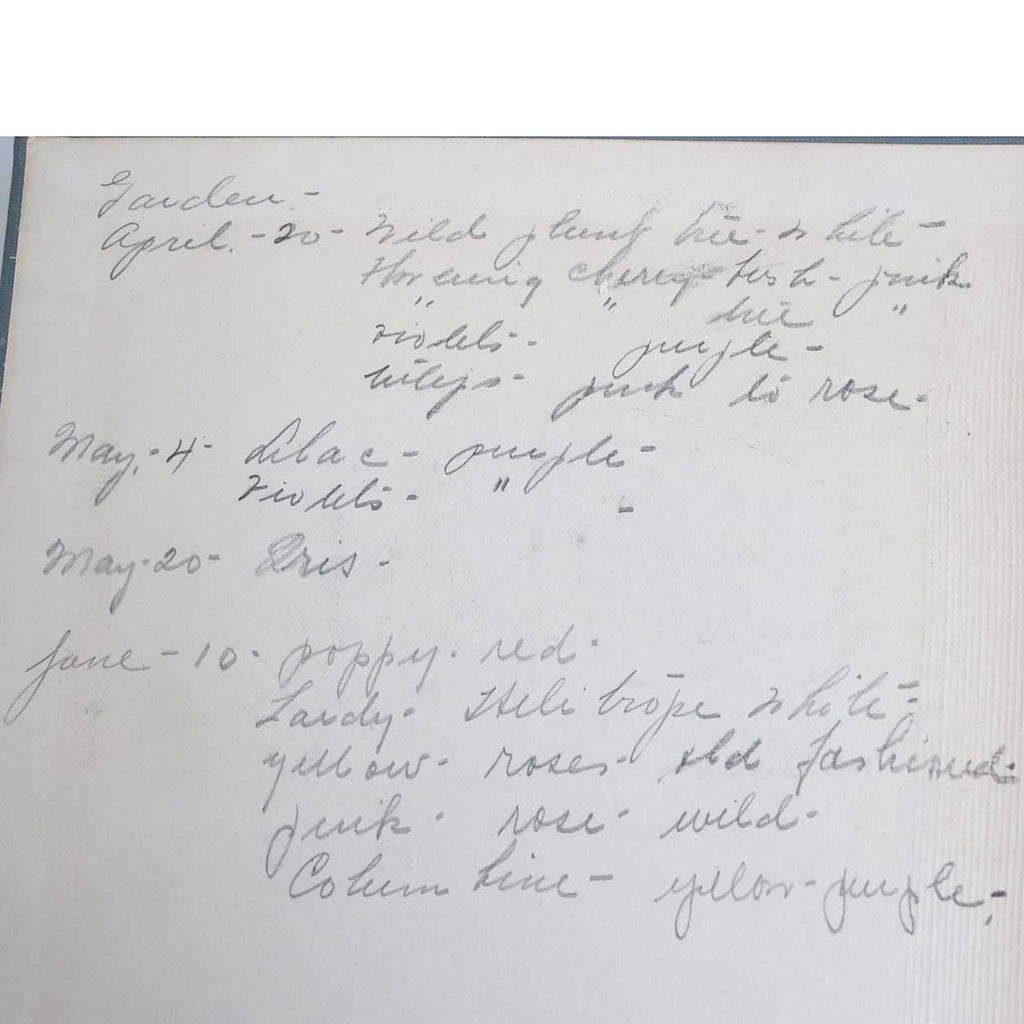 Garden -
April. - 20 - Wild plum tree - white -
Flowering cherry bush - pink
" " tree "
violets - purple -
tulips - pink to rose -
May. - 4 - Lilac - purple -
Violets - " -
May - 20 - Iris -
June - 10 - poppy - red -
Hardy - Helitrope white -
yellow - roses - old fashioned -
pink - rose - wild -
Columbine - yellow - purple -